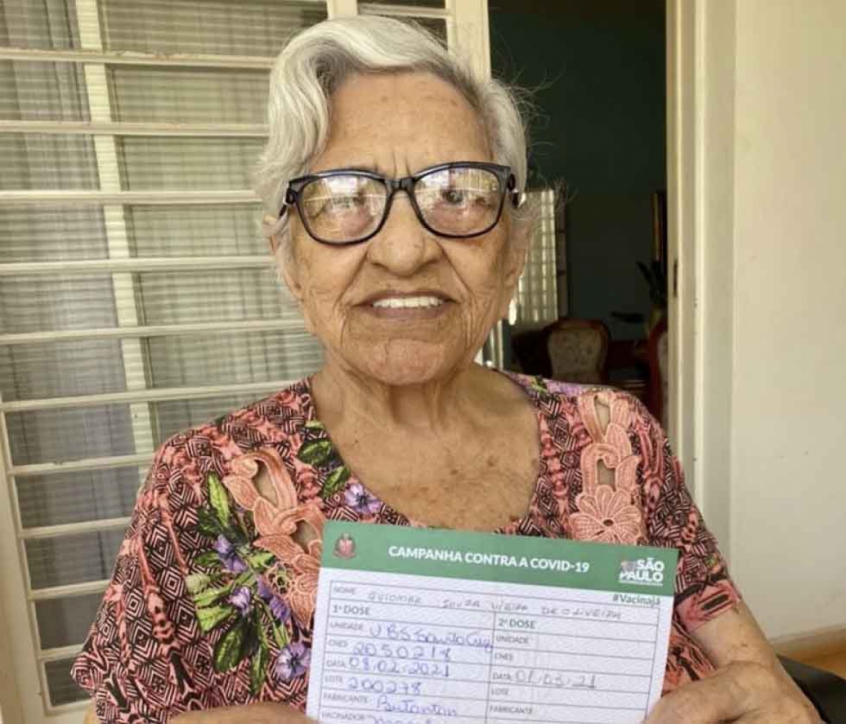 CAMPANHA CONTRA A COVID-19
SÃO PAULO
#VacinaJá
NOME GUIOMAR SOUZA VIEIRA DE OLIVEIRA
1ª DOSE
UNIDADE UBS Santa Cruz
CNES 2050218
DATA 08.02.2021
LOTE 200278
FABRICANTE Butantan
VACINADOR
2ª DOSE
UNIDADE
CNES
DATA 01.03.21
LOTE
FABRICANTE